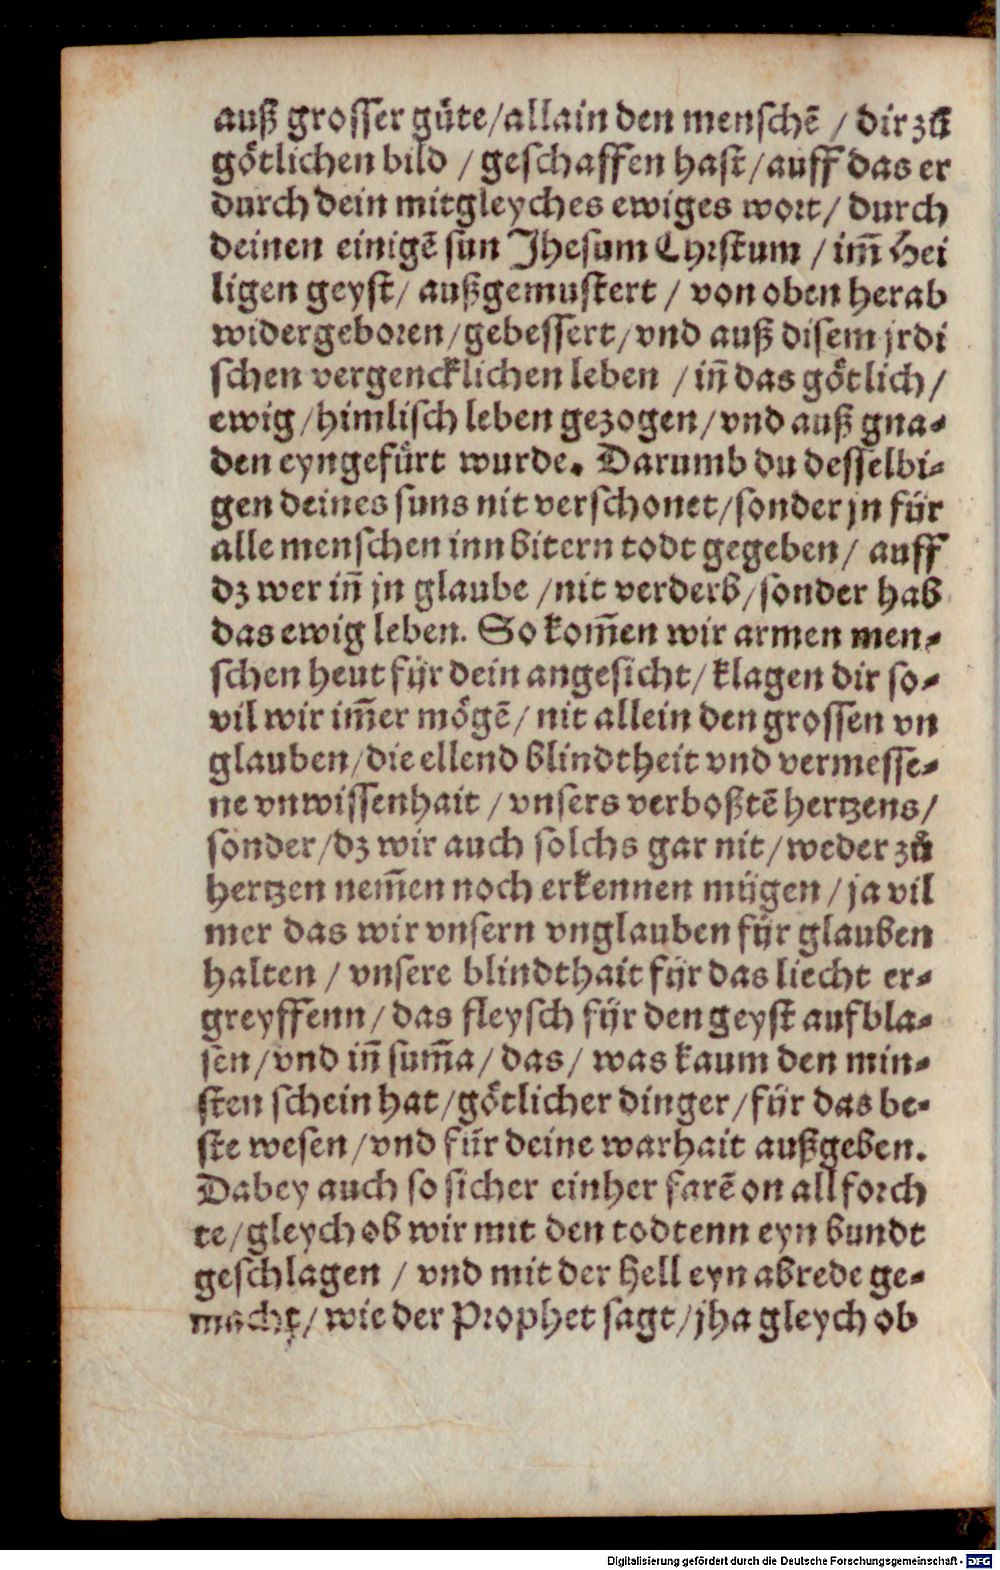 auß grosser güte/allain den menschē / dir zů
götlichen bild / geschaffen hast/auff das er
durch dein mitgleyches ewiges wort/ durch
deinen einigē sun Jhesum Chrstum / im̄ Hei
ligen geyst/ außgemustert / von oben herab
widergeboren/gebessert/vnd auß disem jrdi
schen vergencklichen leben / in̄ das götlich/
ewig/himlisch leben gezogen/vnd auß gna-
den eyngefürt wurde. Darumb du desselbi-
gen deines suns nit verschonet/sonder jn für
alle menschen inn bitern todt gegeben/ auff
dz wer in̄ jn glaube /nit verderb/sonder hab
das ewig leben. So kom̄en wir armen men-
schen heut für dein angesicht/klagen dir so-
vil wir im̄er mögē/ nit allein den grossen vn
glauben/die ellend blindtheit vnd vermesse-
ne vnwissenhait / vnsers verboßtē hertzens/
sonder/dz wir auch solchs gar nit/weder zů
hertzen nem̄en noch erkennen mügen / ja vil
mer das wir vnsern vnglauben für glauben
halten / vnsere blindthait für das liecht er-
greyffenn/das fleysch für den geyst aufbla-
sen/vnd in̄ sum̄a/das/ was kaum den min-
sten schein hat/götlicher dinger/für das be-
ste wesen/vnd für deine warhait außgeben.
Dabey auch so sicher einher farē on all forch
te/gleych ob wir mit den todtenn eyn bundt
geschlagen / vnd mit der hell eyn abrede ge-
macht/wie der Prophet sagt/jha gleych ob
Digitalisierung gefördert durch die Deutsche Forschungsgemeinschaft - DFG